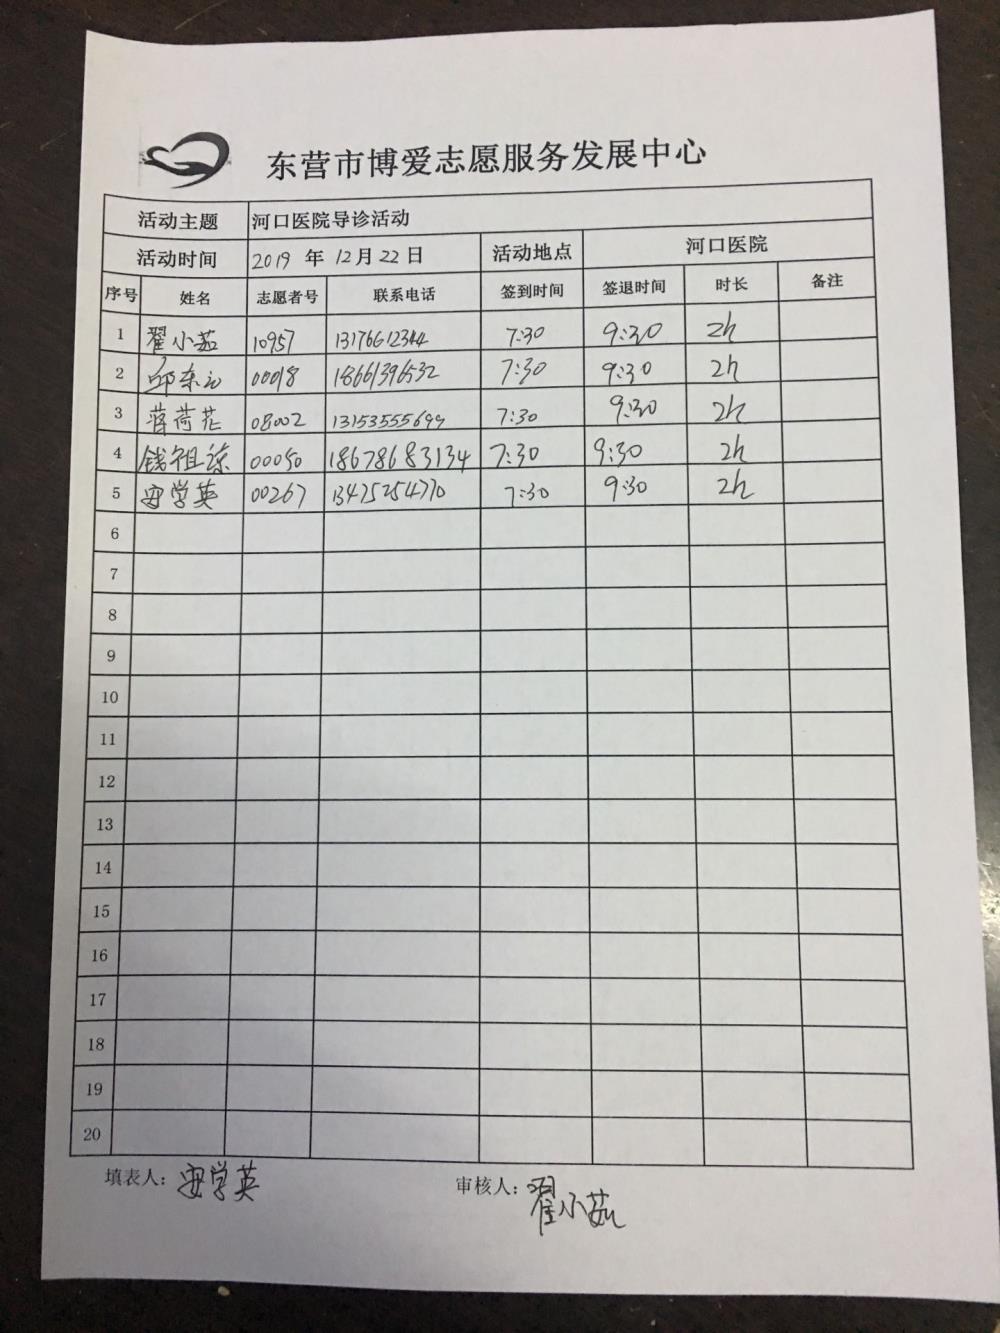 东营市博爱志愿服务发展中心
活动主题 河口医院导诊活动
活动时间 2019 年 12月 22 日 活动地点 河口医院
序号 姓名 志愿者号 联系电话 签到时间 签退时间 时长 备注
1 翟小茹 10957 13176612344 7:30 9:30 2h
2 邱东 00018 18661396532 7:30 9:30 2h
3 蒋荷花 08002 13153555699 7:30 9:30 2h
4 钱祖 00050 18678683134 7:30 9:30 2h
5 安学英 00267 13475254770 7:30 9:30 2h
6
7
8
9
10
11
12
13
14
15
16
17
18
19
20
填表人：安学英 审核人：翟小茹